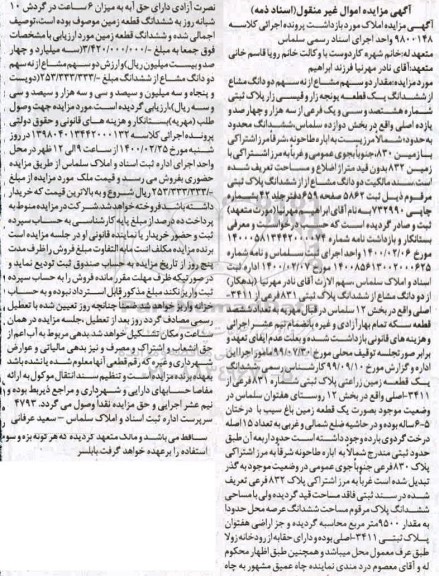 آگهی مزایده اموال غیر منقول(اسناد ذمه)
آگهی مزایده املاک مورد بازداشت پرونده اجرائی کلاسه
۹۸۰۰۱۴۸ واحد اجرای اسناد رسمی سلماس
متعهد له:خانم شهره کاردوست با وکالت خانم رویا قاسم خانی
متعهد:آقای نادر مهرنیا فرزند ابراهیم
مورد مزایده:مقدار دو سهم مشاع از نه سهم دو دانگ مشاع
از ششدانگ یک قطعه یونجه زار و قیسی زار پلاک ثبتی
شماره هشتصد و سی و یک فرعی از سه هزار و چهارصد و
یازده اصلی واقع در بخش دوازده سلماس،ششدانگ محدود
به حدود:شمالا مرزیست به اباره طاحونه،شرقا مرز اشتراکی
با زمین ۸۳۰،جنوبا بجوی عمومی و غربا به مرز اشتراکی با
زمین ۸۳۲
است سند مالکیت دو دانگ مشاع از ششدانگ پلاک ثبتی
مرقوم ذیل ثبت ۵۸۶۲ صفحه ۵۹ دفتر جلد ۲۲ بشماره
چاپی ۷۳۲۹۹۰ بنام آقای ابراهیم مهرنیا(مورث متعهد)
ثبت و صادر گردیده است که حسب درخواست و معرفی
بستانکار و بازداشت نامه شماره
مورخ ۱۴۰۰/۰۲/۰۶ واحد اجرای ثبت سلماس و نامه شماره
۱۴۰۰۸۵۶۱۳۰۰۲۰۰۰۶۲۵ مورخ ۱۴۰۰/۰۲/۰۷ اداره ثبت
اسناد و املاک سلماس سهم الارث آقای نادر مهرنیا (بدهکار)
از دو دانگ مشاع از ششدانگ پلاک ثبتی ۸۳۱ فرعی از ۳۴۱۱-
اصلی واقع در بخش ۱۲ سلماس در قبال مهریه به تعداد ششصد
قطعه سکه تمام بهار آزادی و غیره بانضمام نیم عشر اجرائی
و هزینه های قانونی بازداشت شده و بعلت عدم ایفای تعهد و
برابر صورتجلسه توقیف محلی مورخ ۹۹/۰۷/۳۰ مامور اجرا این
اداره و گزارش مورخ ۹۹/۰۹/۱۰ کارشناس رسمی ششدانگ
یک قطعه زمین زراعتی پلاک ثبتی شماره ۸۳۱ فرعی از
۳۴۱۱-اصلی واقع در بخش ۱۲ روستای هفتوان سلماس در
وضعیت موجود بصورت یک قطعه زمین باغ سیب با درختان
۵-۶ ساله بوده و در حاشیه ضلع شمالی و غربی به تعداد ۱۵ اصله
درخت گردوی بارده وجود داشته است حدود اربعه آن طبق
حدود ثبتی مندرج شمالا به اباره طاحونه شرقا به مرز اشتراکی
پلاک ۸۳۰ فرعی جنوبا بجوی عمومی در وضعیت موجود به گذر
تبدیل شده است غربا به مرز اشتراکی پلاک ۸۳۲ فرعی تعریف
شده در سند ثبتی فاقد مساحت قید گردیده ولی با مساحی
ششدانگ پلاک مرقوم مساحت ششدانگ عرصه محل حدودا
به مقدار ۹۵۰۰ متر مربع محاسبه گردیده و جز اراضی هفتوان
پلاک ثبتی ۳۴۱۱-اصلی بوده و دارای حقابه از رودخانه زولا
طبق عرف معمول محل میباشد و همچنین طبق اظهار محکوم
له و آقای معصوم درد مندی نماینده چاه عمیق مشهور به چاه
نصرت آزادی دارای حق آبه به میزان ۶ ساعت در گردش ۱۰
شبانه روز به ششدانگ قطعه زمین موصوف بوده است،توصیف
اجمالی شده و ششدانگ قطعه زمین مورد ارزیابی با مشخصات
فوق جمعا به مبلغ ۳/۴۲۰/۰۰۰/۰۰۰/-(سه میلیارد و چهار
صد و بیست میلیون ریال)و ارزش دو سهم مشاع از نه سهم
دو دانگ مشاع از ششدانگ مبلغ ۲۵۳/۳۳۳/۳۳۳/-(دویست
و پنجاه و سه میلیون و سیصد و سی و سه هزار و سیصد و سی
و سه ریال)ارزیابی گردیده است.مورد مزایده جهت وصول
طلب (مهریه)بستانکار و هزینه های قانونی و حقوق دولتی
پرونده اجرائی کلاسه ۱۳۹۸۰۴۰۱۳۴۴۲۰۰۰۱۳۲ در روز
شنبه مورخ ۱۴۰۰/۰۳/۲۵ از ساعت ۹ الی ۱۲ ظهر در محل
واحد اجرای اداره ثبت اسناد و املاک سلماس از طریق مزایده
حضوری بفروش می رسد و قیمت ملک مورد مزایده از مبلغ
۲۵۳/۳۳۳/۳۳۳/-ریال شروع و به بالاترین قیمت که خریدار
داشته باشد فروخته خواهد شد.شرکت در مزایده منوط به
پرداخت ده درصد از مبلغ پایه کارشناسی به حساب سپرده
ثبت و حضور خریدار یا نماینده قانونی او در جلسه مزایده است
برنده مزایده مکلف است مابه التفاوت مبلغ فروش را ظرف مدت
پنج روز از تاریخ مزایده به حساب صندوق ثبت تودیع نماید و
در صورتیکه ظرف مهلت مقرر مانده فروش را به حساب سپرده
ثبت واریز نکند،مبلغ مذکور قابل استرداد نبوده و به حساب
خزانه واریز خواهد شد.ضمنا چنانچه روز تعیین شده با تعطیل
رسمی مصادف گردد روز بعد از تعطیل،جلسه مزایده در همان
ساعت و مکان تشکیل خواهد شد.بدهی مربوط به آب اعم از
حق انشعاب و اشتراک و مصرف و نیز بدهی مالیاتی و عوارض
شهرداری و غیره که رقم قطعی آنها معلوم شده یا نشده باشد
بعهده برنده مزایده است و تنظیم سند انتقال موکول به ارائه
مفاصا حسابهای دارایی و شهرداری و مراجع ذیربط بوده و
نیم عشر اجرایی و حق مزایده نقدا وصول می گردد. ۴۷۹۳
سرپرست اداره ثبت اسناد و املاک سلماس – سعید عرفانی
ساقط می باشد و مالک متعهد گردیده که هر گونه
استفاده را برعهده خواهد گرفت